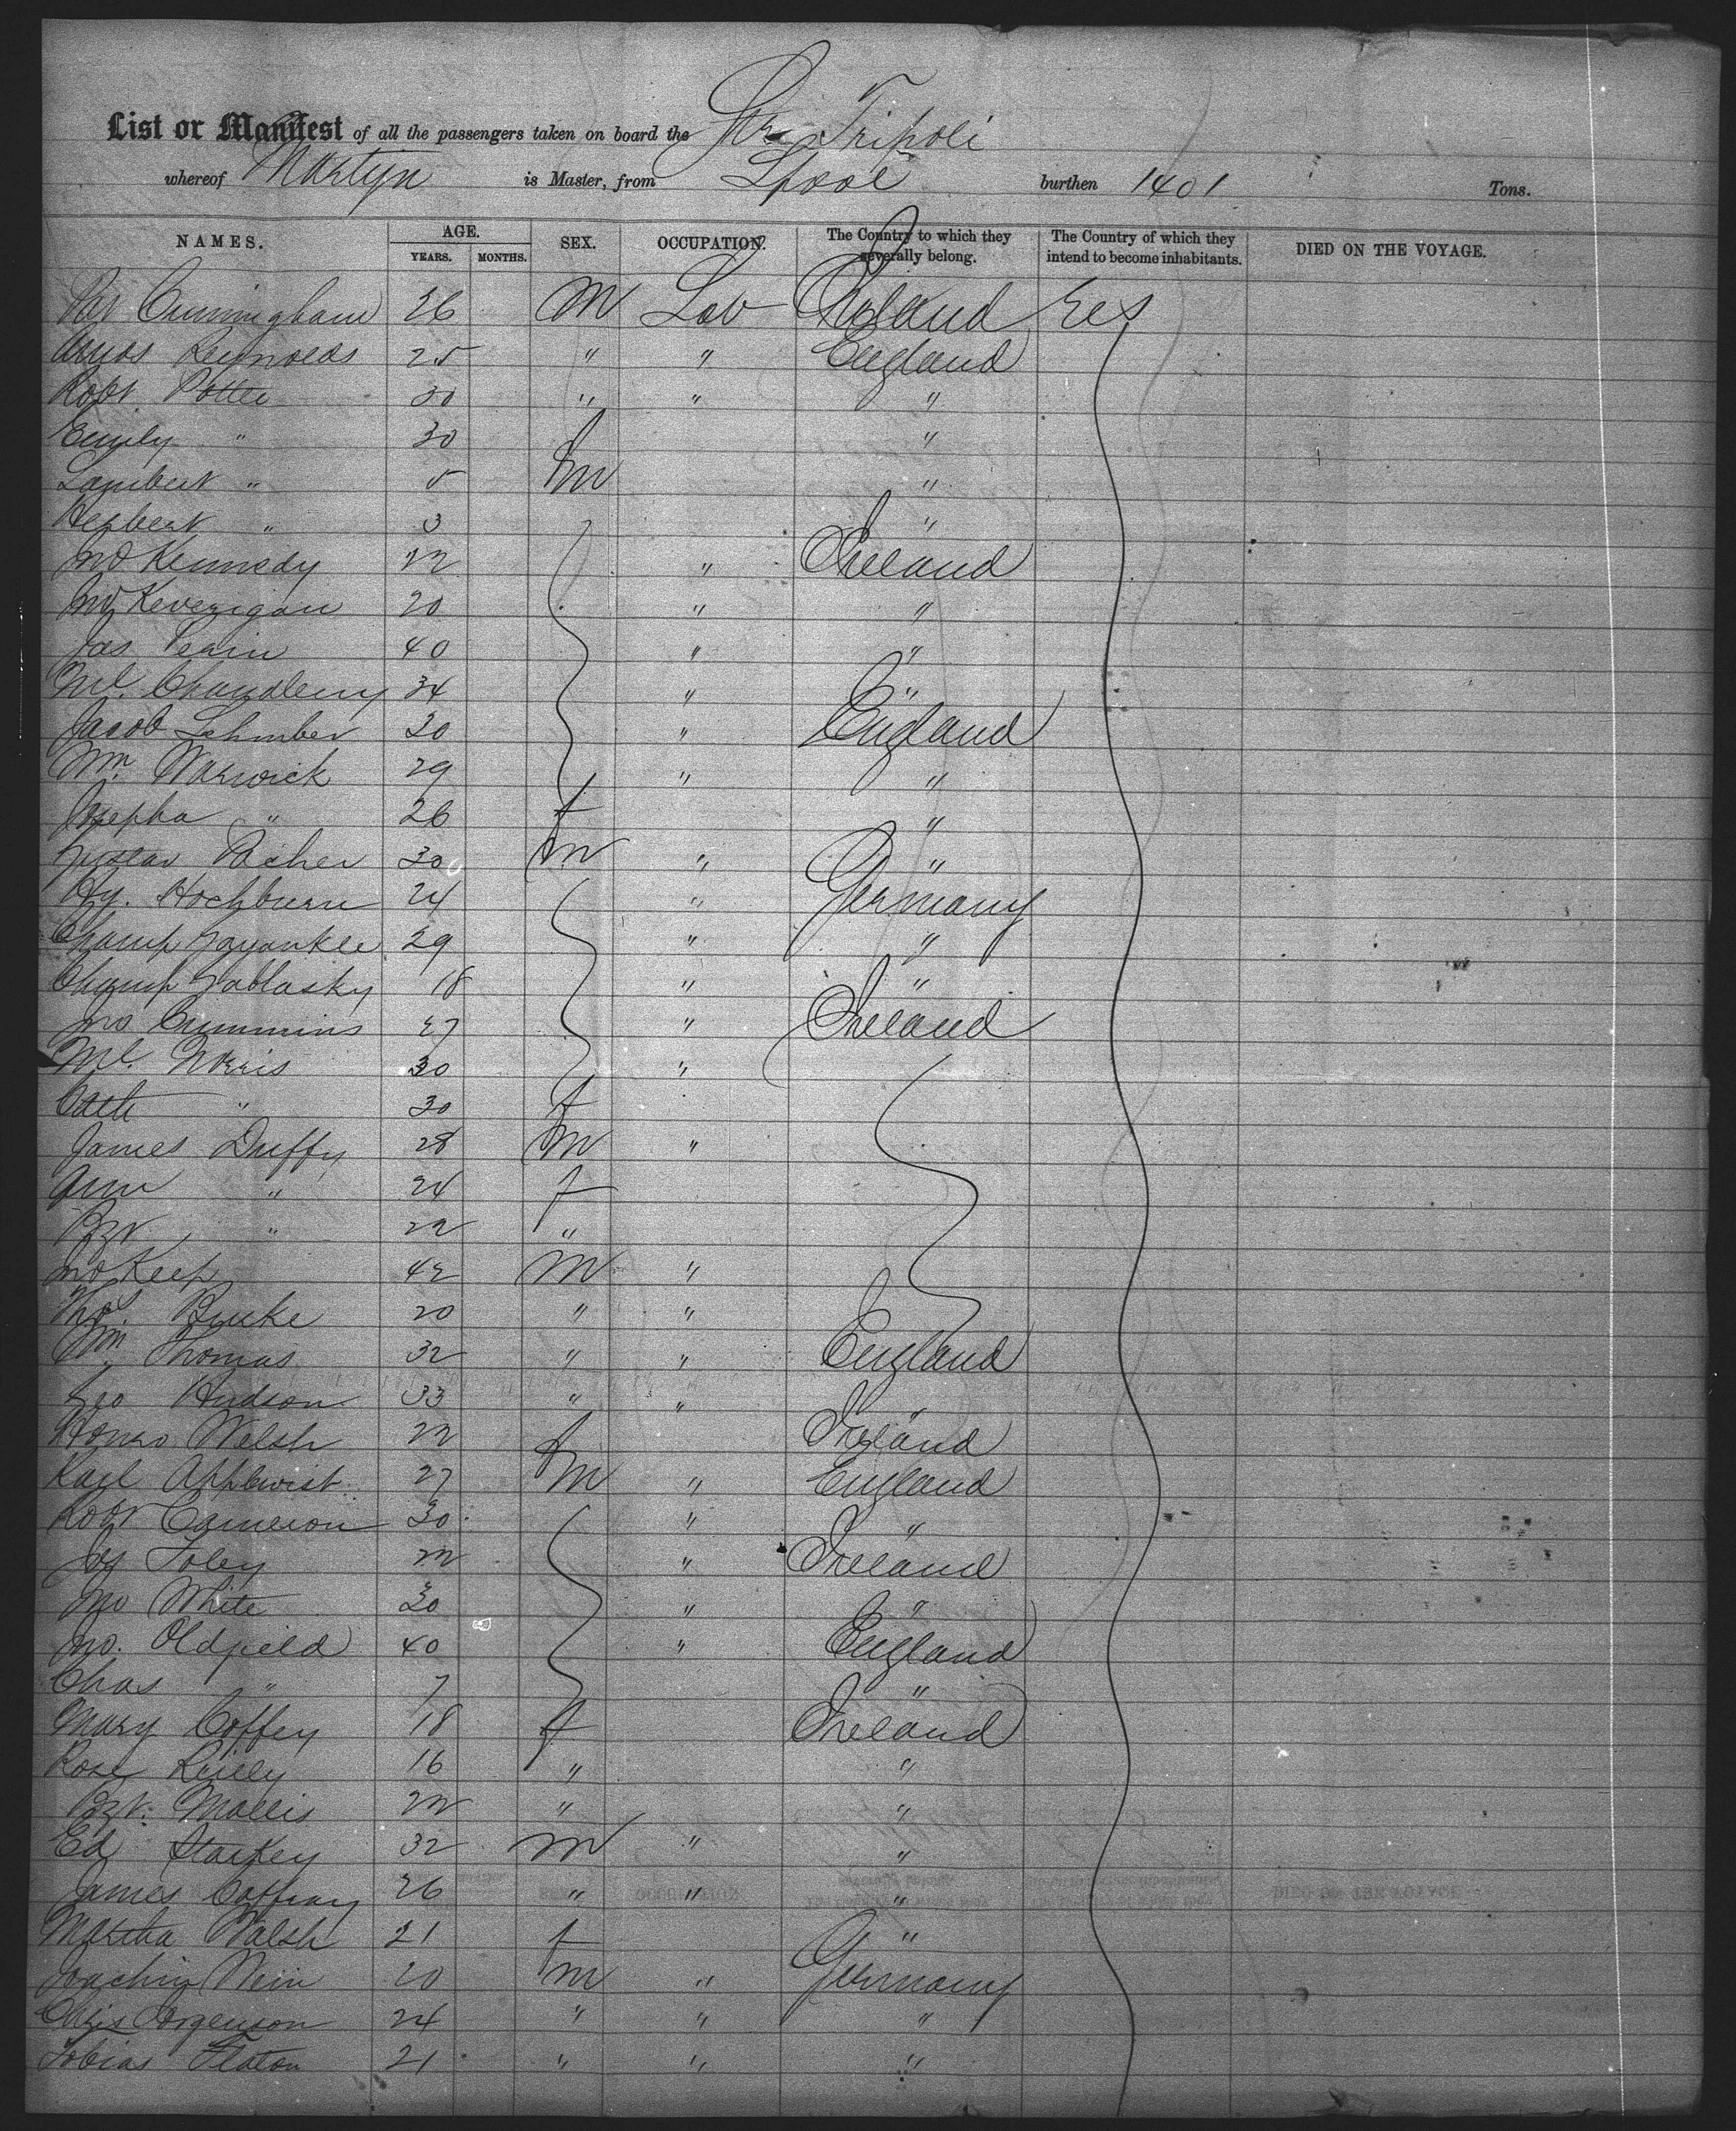 List or Manifest of all the passengers taken on board the Str Tripoli
whereof Martyn is Master, from Lpool burthen 1401 Tons.
NAMES. AGE. YEARS. MONTHS. SEX. OCCUPATION. The Country to which they severally belong. The Country of which they intend to become inhabitants. DIED ON THE VOYAGE.
Cunningham 26 M Lab
Amos Reynolds 25 " " England
Robt Potter 30 " " "
Emily " 30 f "
Lambert " 5 m "
Herbert " 3 "
Jno Kennedy 22 " Ireland
Jno Keverigan 20 " "
Jas 40 " "
Ml. 34 " "
Jacob 20 " England
Wm Warwick 29 " "
Josepha " 26 f "
Gustav 30 m " "
Hy. Hochburn 24 " Germany
29 " "
18 " "
Jno Cummins 27 " Ireland
Ml. Norris 30 "
Cath " 30 f
James Duffy 28 m "
Ann " 24 f
Bgt " 22 "
Jno Keep 42 M "
Thos. Burke 20 " "
Wm Thomas 32 " " England
Geo Hudson 33 " " "
Welsh 22 f Ireland
Karl 27 m " England
Robt Cameron 30 " "
Foley 22 " Ireland
Jno White 30 " "
Jno. Oldfield 40 " England
Chas " 7 "
Mary Coffey 18 f Ireland
Rose Reilly 16 " "
Bgt. Mollis 22 " "
Ed Starkey 32 m " "
James 26 " " "
Martha Walsh 21 f "
Joachim 20 m " Germany
Chris Jorgenson 24 " " "
Tobias Flaton 21 " " "